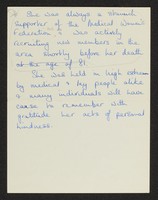 She was always a staunch
supporter of the Medical Women's
Federation & was actively
recruiting new members in the
area shortly before her death
at the age of 81
She was held in high esteem
by medical & lay people alike
& many individuals will have
cause to remember with
gratitude her acts of personal
kindness.